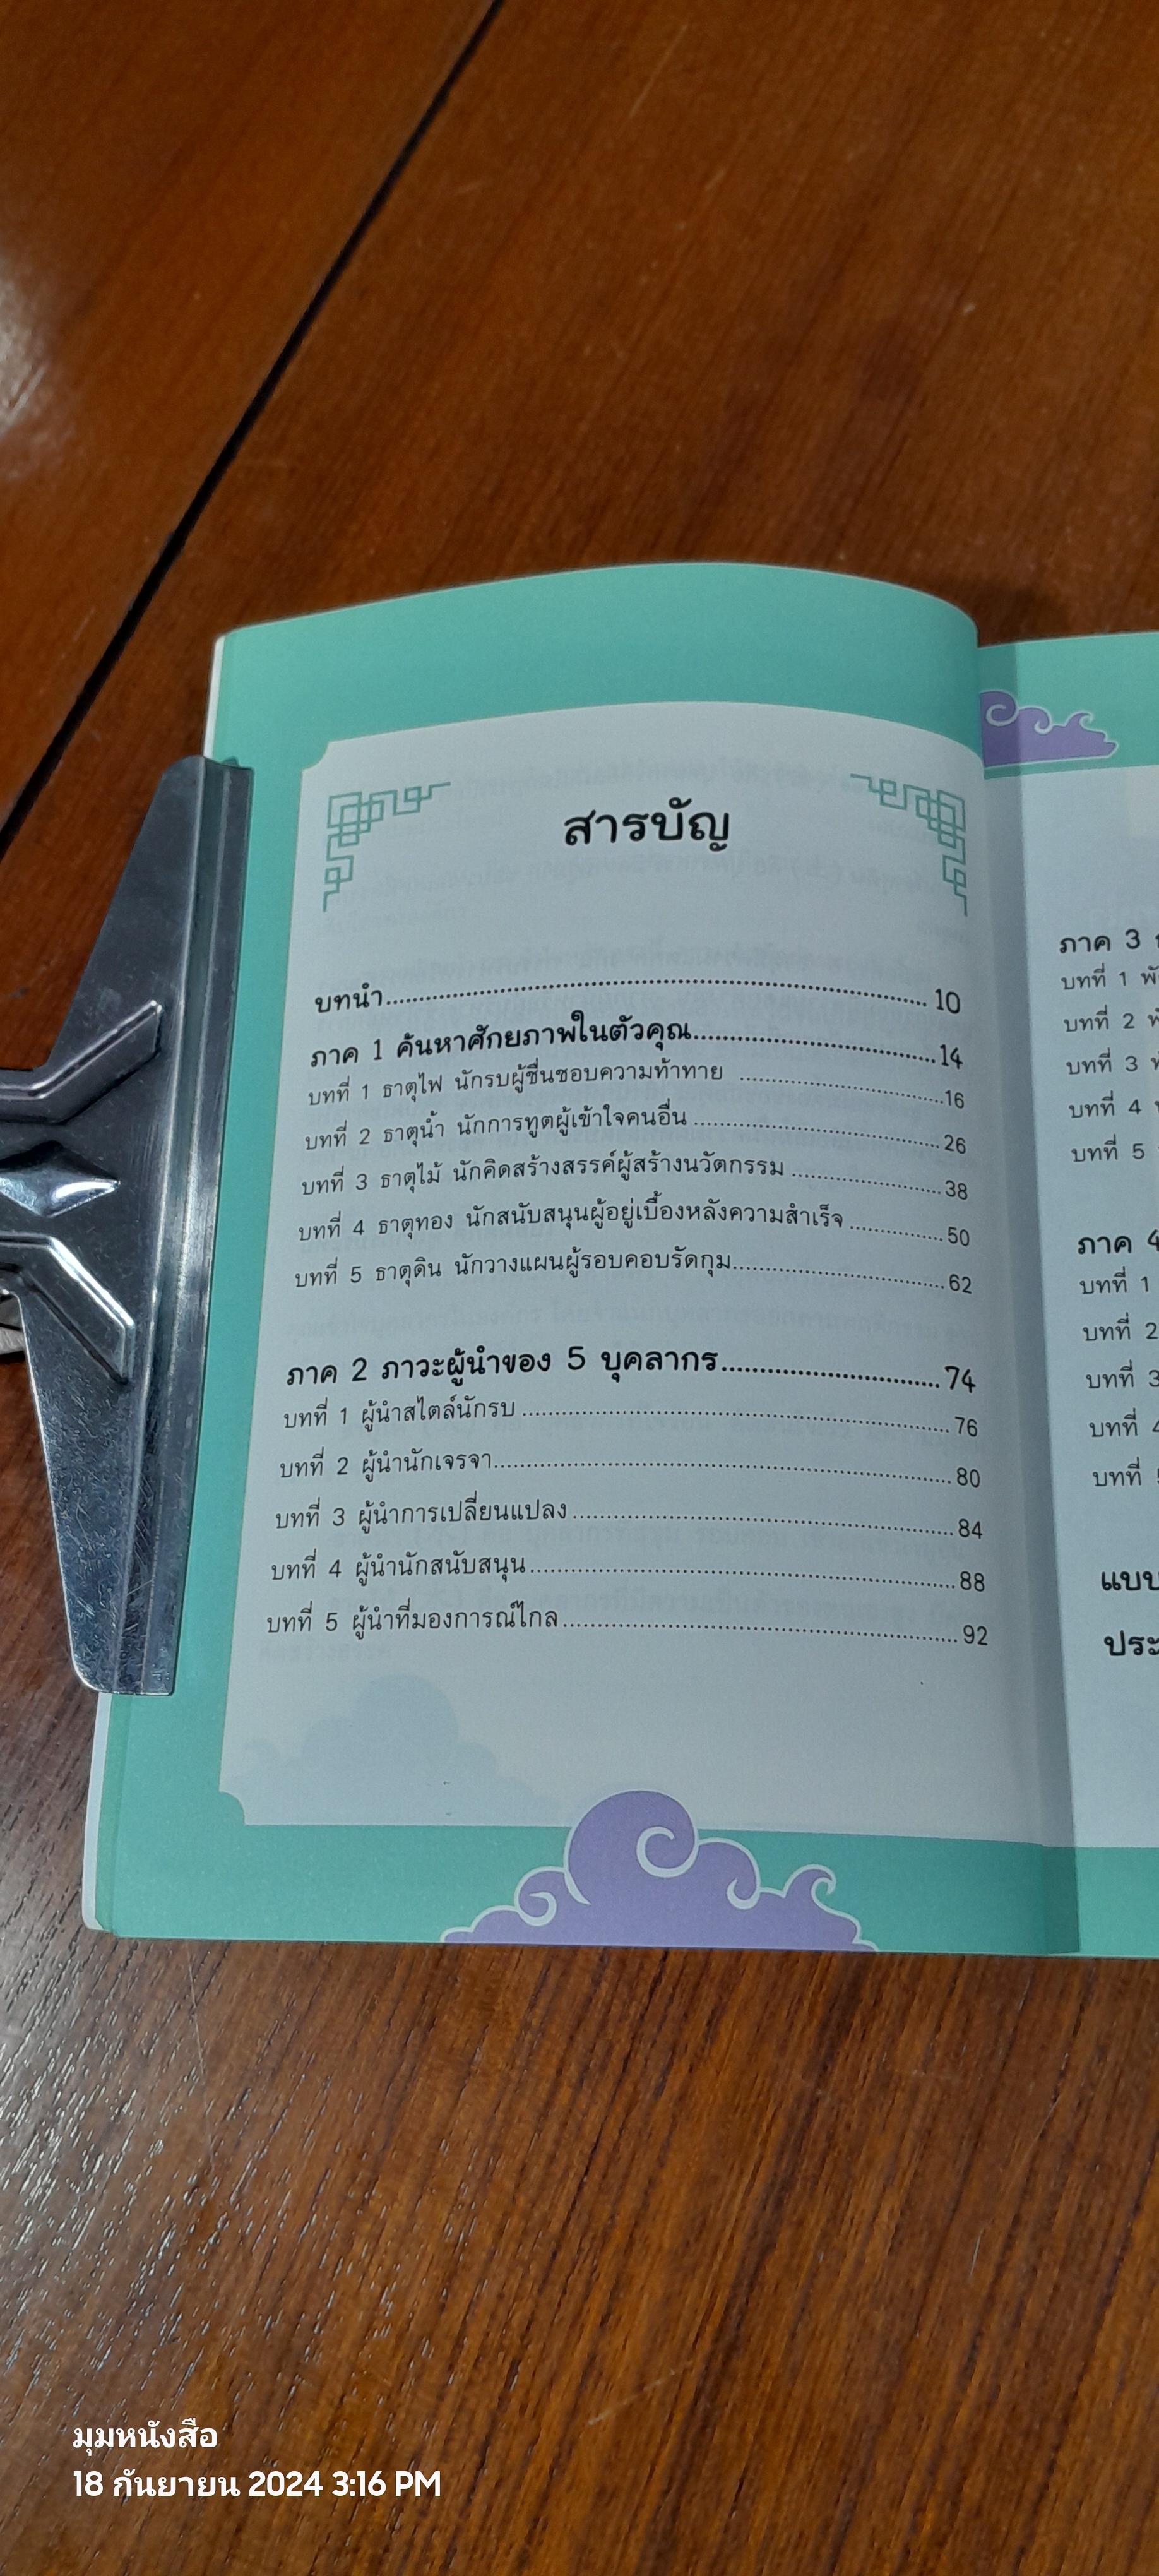 สารบัญ
บทนำ.......... 10
ภาค 1 ค้นหาศักยภาพในตัวคุณ..........14
บทที่ 1 ธาตุไฟ นักรบผู้ชื่นชอบความท้าทาย ..........16
บทที่ 2 ธาตุน้ำ นักการทูตผู้เข้าใจคนอื่น ..........26
บทที่ 3 ธาตุไม้ นักคิดสร้างสรรค์ผู้สร้างนวัตกรรม ..........38
บทที่ 4 ธาตุทอง นักสนับสนุนผู้อยู่เบื้องหลังความสำเร็จ ..........50
บทที่ 5 ธาตุดิน นักวางแผนผู้รอบคอบรัดกุม..........62
ภาค 2 ภาวะผู้นำของ 5 บุคลากร..........74
บทที่ 1 ผู้นำสไตล์นักรบ ..........76
บทที่ 2 ผู้นำนักเจรจา..........80
บทที่ 3 ผู้นำการเปลี่ยนแปลง ..........84
บทที่ 4 ผู้นำนักสนับสนุน..........88
บทที่ 5 ผู้นำที่มองการณ์ไกล..........92
ภาค 3
บทที่ 1
บทที่ 2
บทที่ 3
บทที่ 4
บทที่ 5
ภาค 4
บทที่ 1
บทที่ 2
บทที่ 3
บทที่ 4
บทที่
แบบ
ประ
มุมหนังสือ
18 กันยายน 2024 3:16 PM